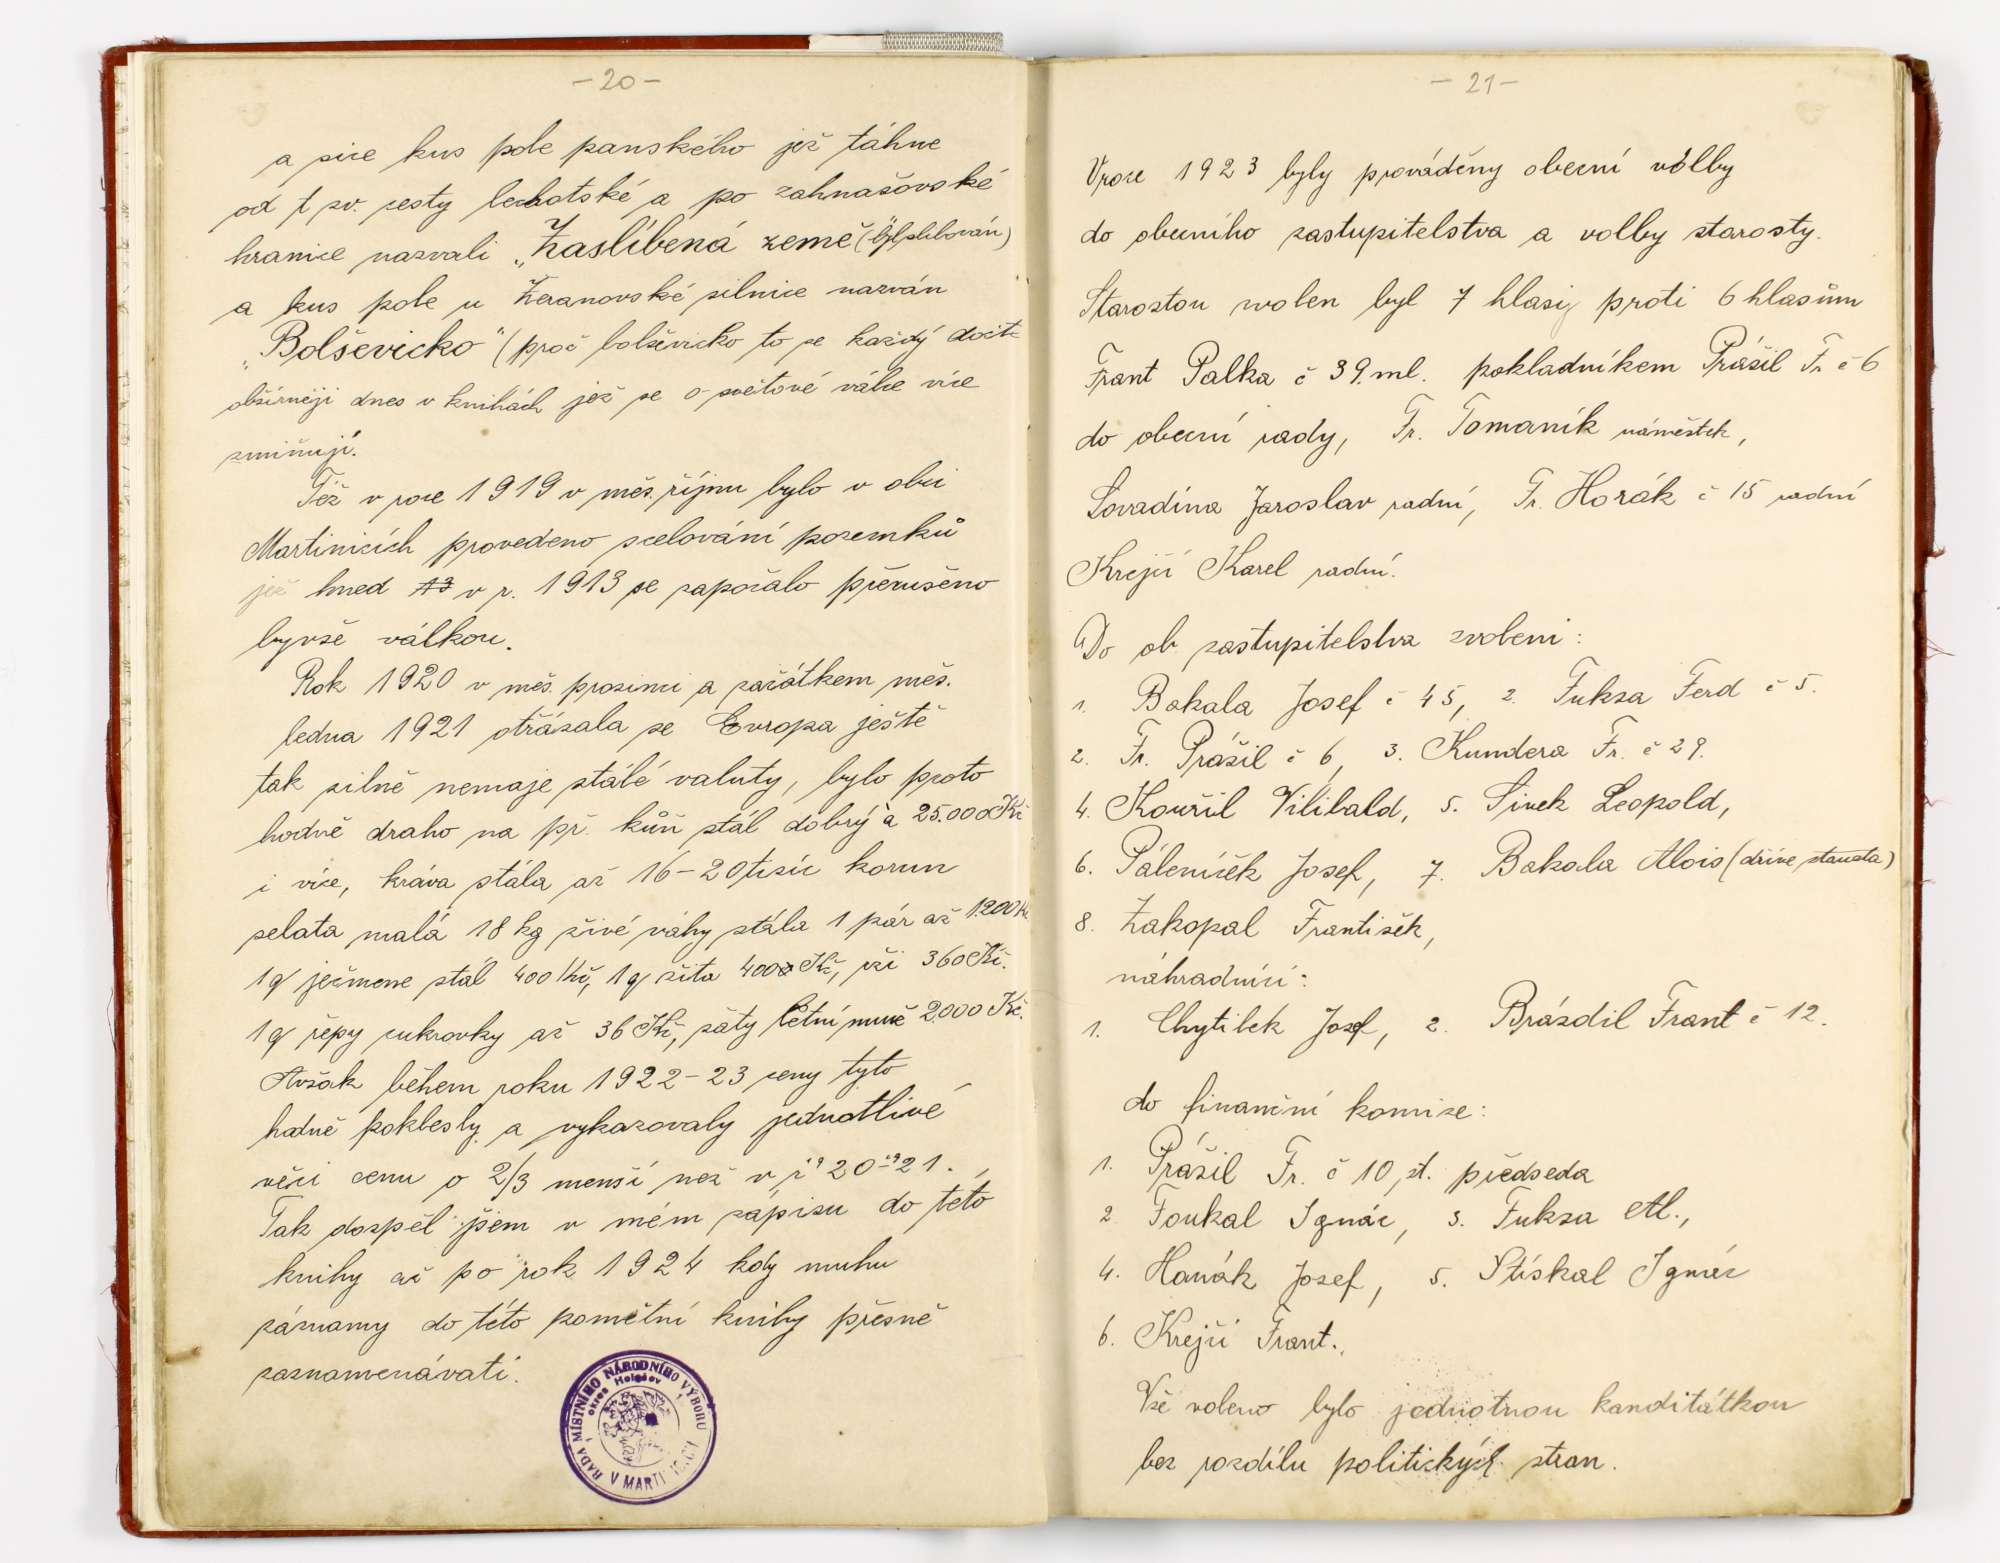 -20-
a sice kus pole panského jež táhne
od t zv. cesty lechotské a po zahnašovské
hranice nazvali „Zaslíbená země (byl slibován)
a kus pole u Žeranovské silnice nazván
„Bolševicko" (proč bolševicko to se každý dočte
obšírněji dnes v knihách jež se o světové válce více
zmiňují.
Též v roce 1919 v měs. říjnu bylo v obci
Martinicích provedeno scelování pozemků
jež hned 13 v r. 1913 se započalo přerušeno
byvše válkou.
Rok 1920 v měs. prosinci a začátkem měs.
ledna 1921 otřásala se Evropa ještě
tak silně nemaje stálé valuty, bylo proto
hodně draho na př. kůň stál dobrý à 25.000 Kč
i více, kráva stála až 16-20 tisíc korun
selata malá 18 kg živé váhy stála 1 pár až 1200 Kč
1q ječmene stál 400 Kč, 1q žita 400 Kč, rži 360 Kč.
1q řepy cukrovky až 36 Kč, šaty letní 2000 Kč.
Avšak během roku 1922-23 ceny tyto
hodně poklesly a vykazovaly jednotlivé
věci cenu o 2/3 menší než v r 1920-1921.
Tak dospěl jsem v mém zápisu do této
knihy až po rok 1924 kdy mohu
záznamy do této pamětní knihy přesně
zaznamenávati.
RADA MÍSTNÍHO NÁRODNÍHO VÝBORU
okres Holešov
V MARTINICÍCH
-21-
V roce 1923 byly prováděny obecní volby
do obecního zastupitelstva a volby starosty.
Starostou zvolen byl 7 hlasy proti 6 hlasům
Frant Palka č 39. ml. pokladníkem Prášil Fr č 6
do obecní rady, Fr. Tomaník náměstek,
Sovadina Jaroslav radní, Fr. Horák č 15 radní
Krejčí Karel radní.
Do ob zastupitelstva zvoleni:
1. Bakala Josef č 45, 2. Fuksa Ferd č 5.
2. Fr. Prášil č 6, 3. Kundera Fr. č 29.
4. Kouřil Vilibald, 5. Sivek Leopold,
6. Páleníček Josef, 7. Bakala Alois (dříve starosta)
8. Zakopal František,
náhradníci:
1. Chytilek Josef, 2. Brázdil Frant č 12.
do finanční komise:
1. Prášil Fr. č 10, st. předseda
2. Foukal Ignác, 3. Fuksa Al.,
4. Hanák Josef, 5. Stískal Ignác
6. Krejčí Frant.,
Vše voleno bylo jednotnou kanditátkou
bez rozdílu politických stran.